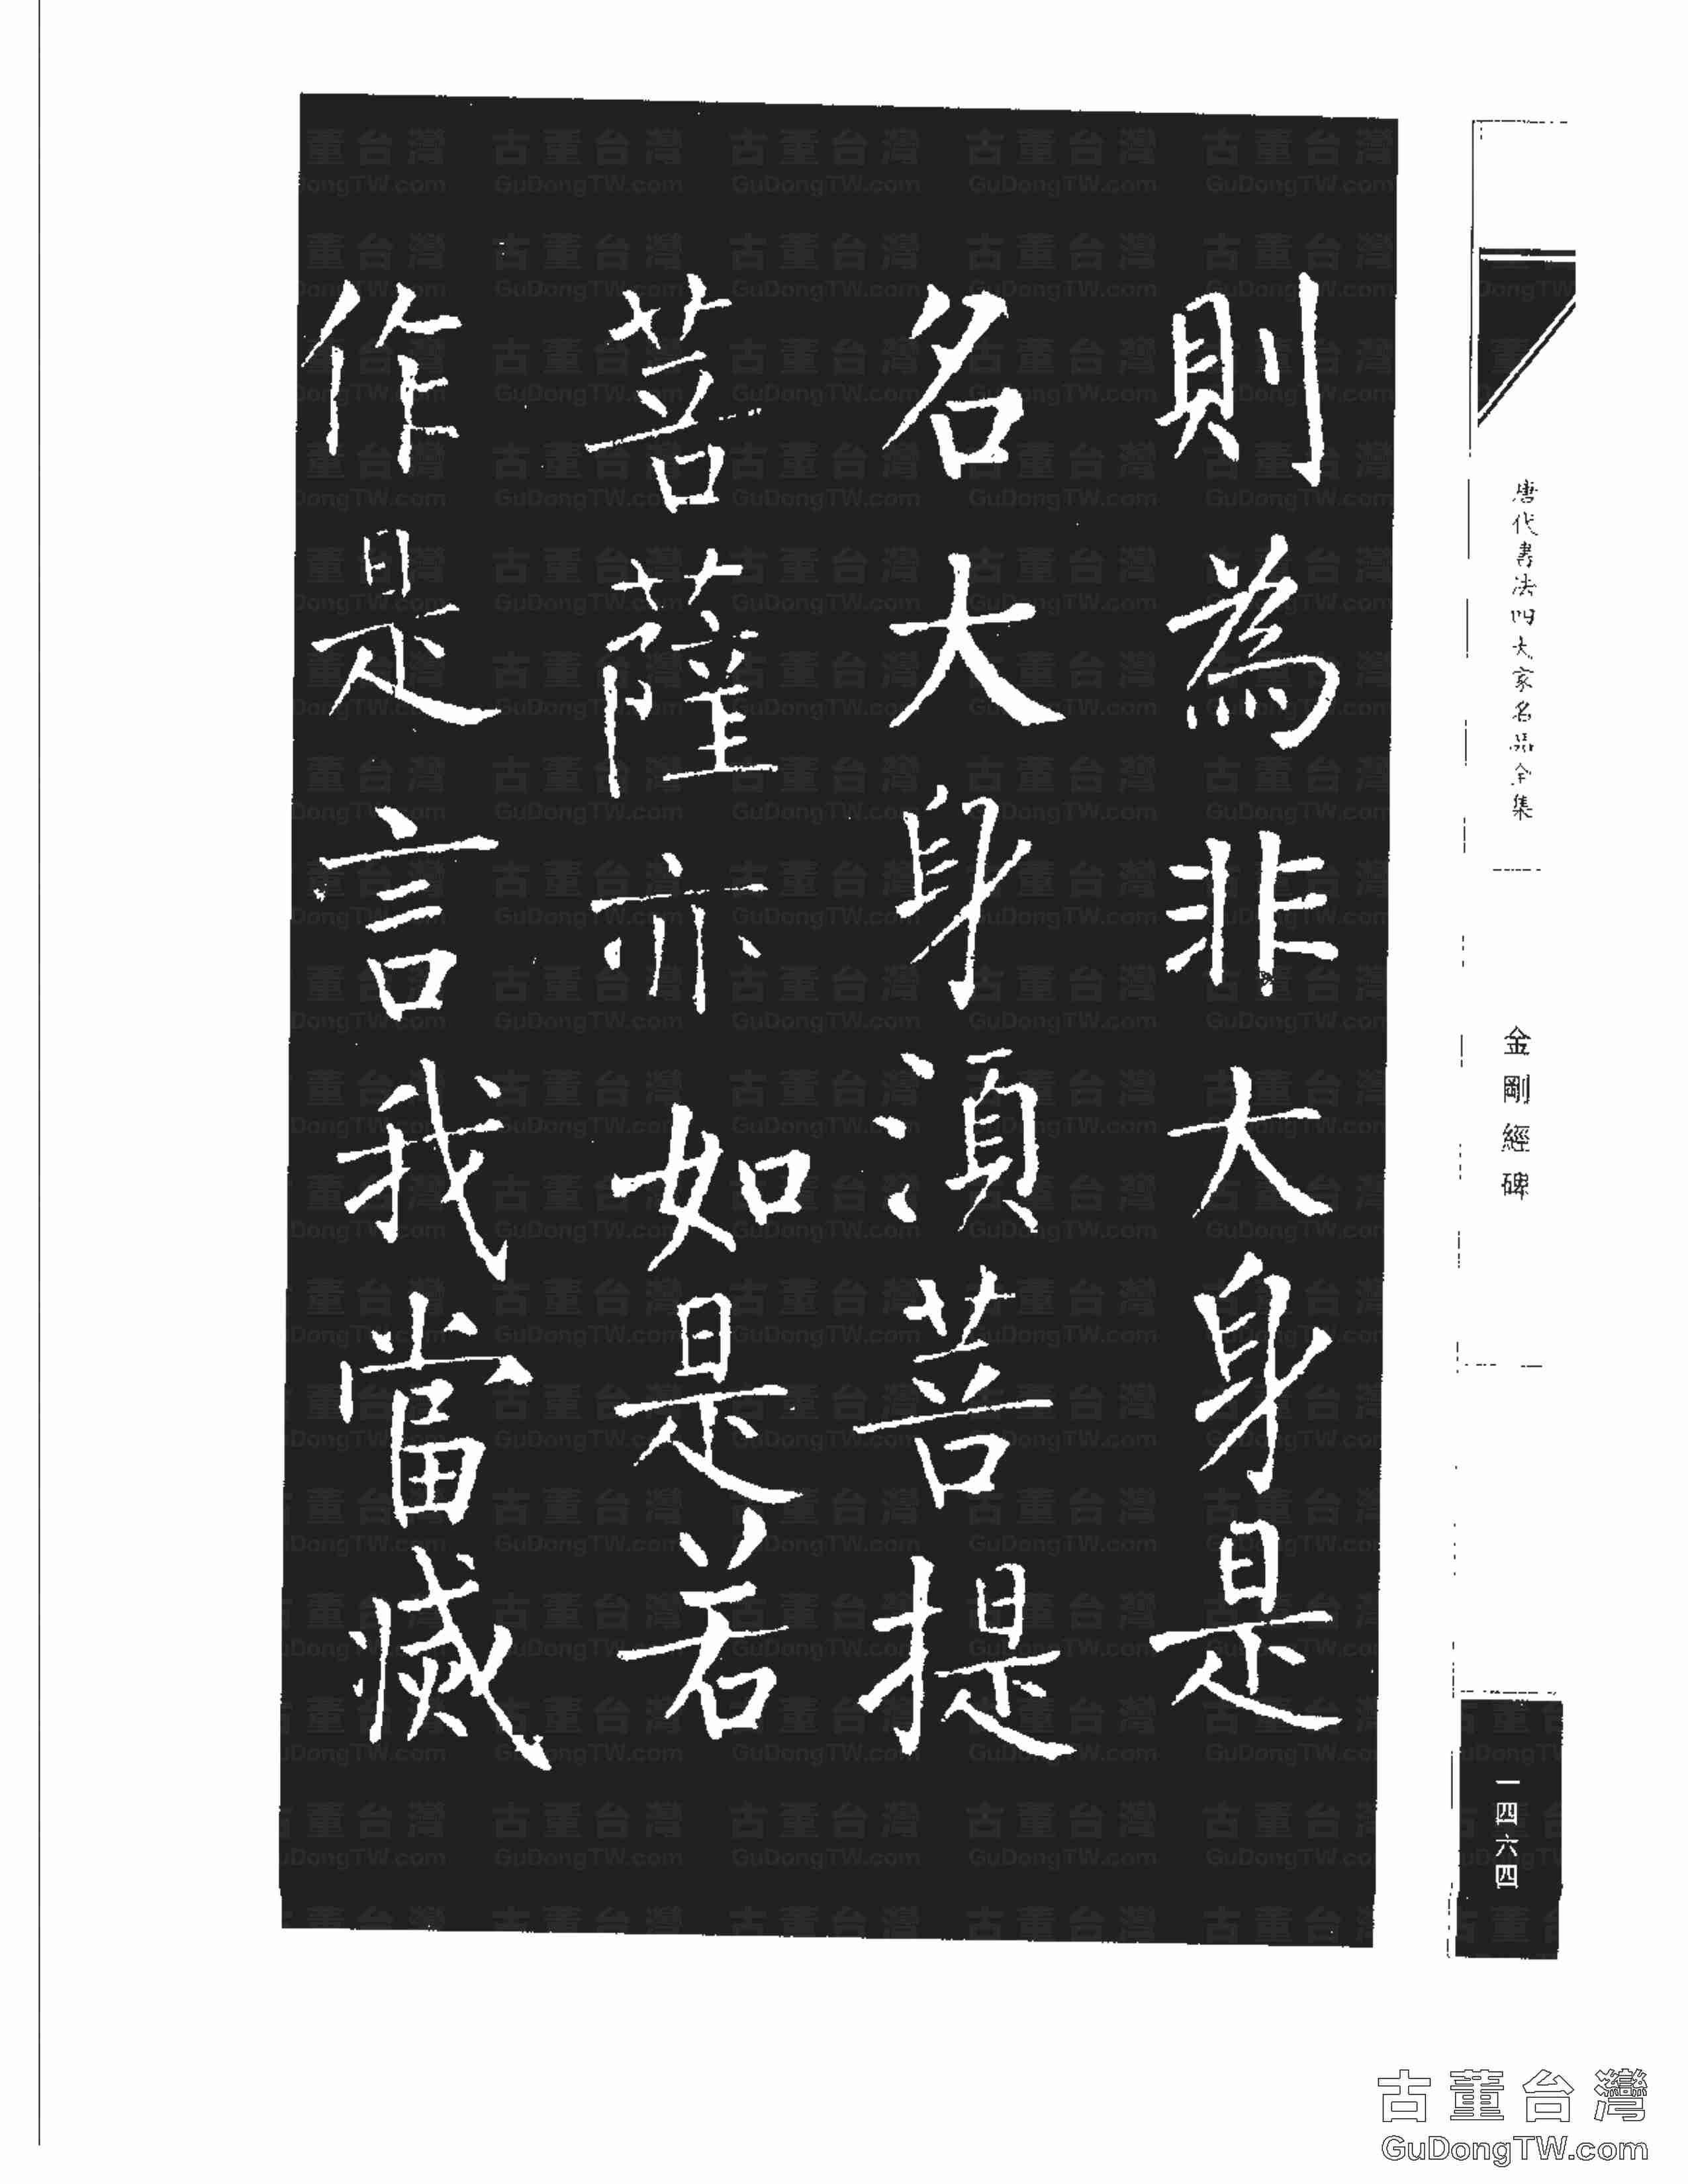 則為非大身是
名大身須菩提
菩薩亦如是若
作是言我當滅
唐代書法四大家名品全集
金剛經碑
一四六四
古董台灣
GuDongTW.com